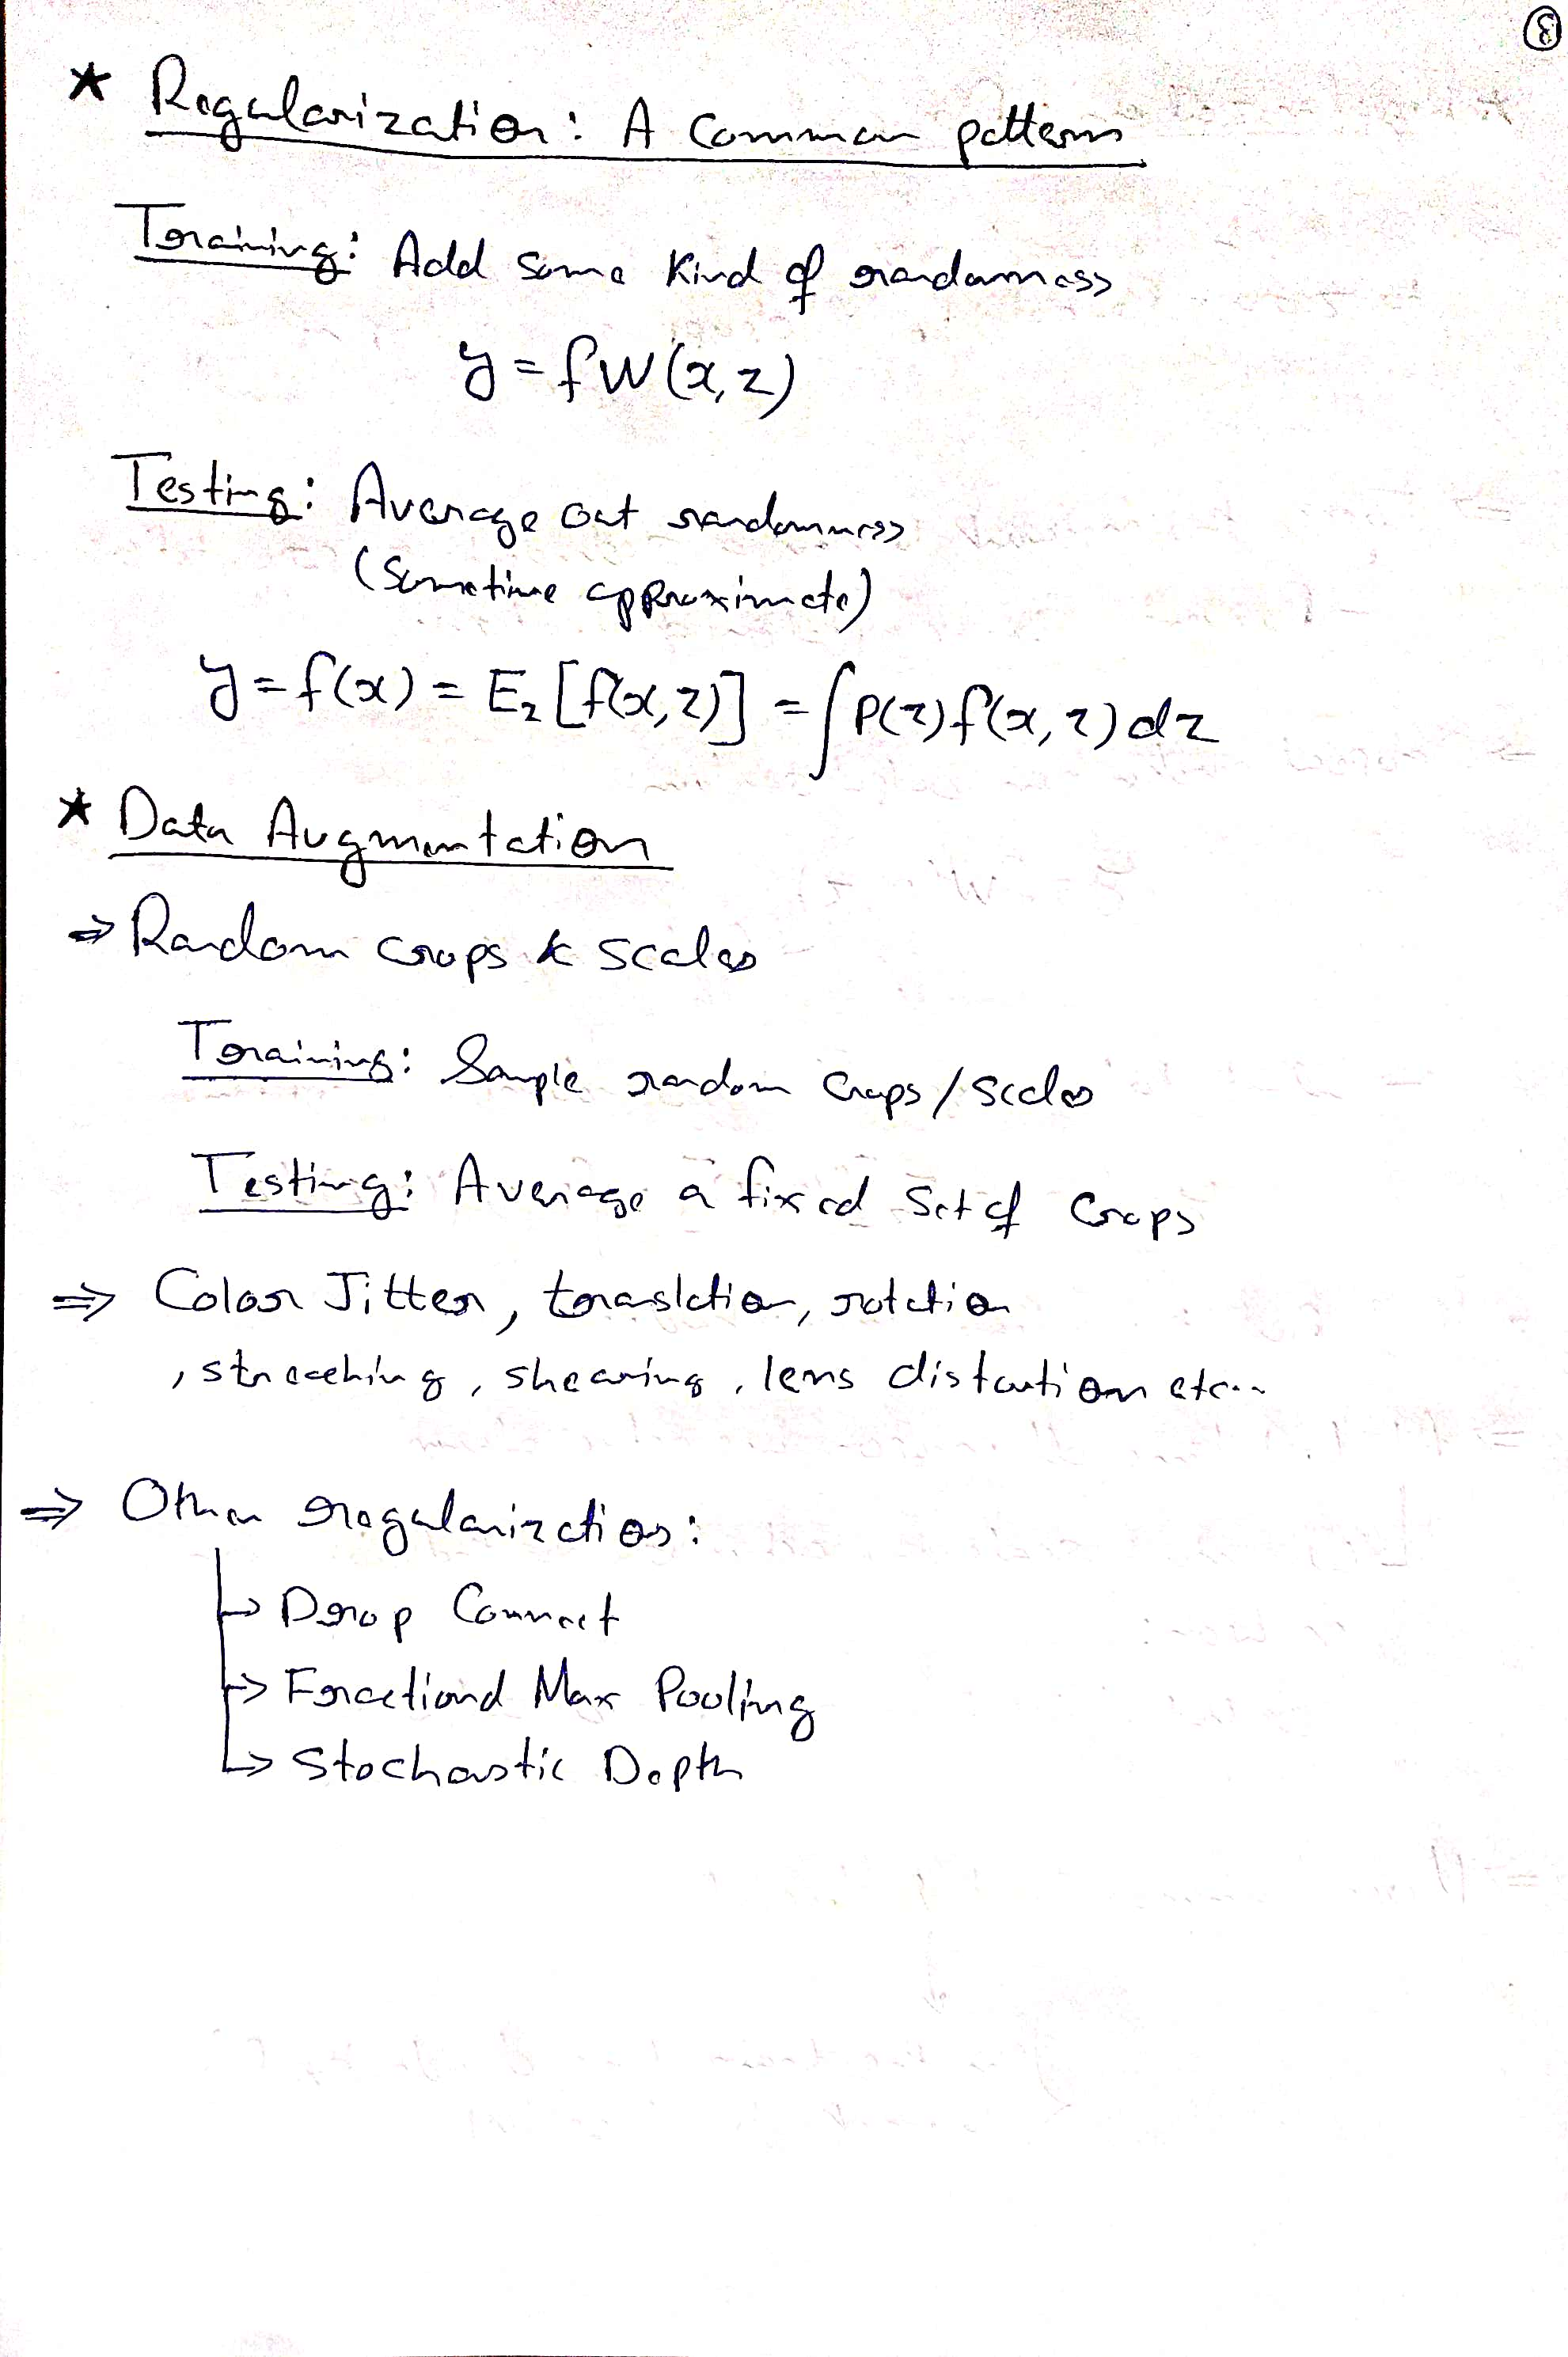 8
* Regularization: A Common pattern
Training: Add some kind of randomness
y = fW(x, z)
Testing: Average out randomness
(Sometime approximate)
y = f(x) = Ez[f(x, z)] = ∫P(z)f(x, z)dz
* Data Augmentation
⇒ Random crops & scales
Training: Sample random crops / scales
Testing: Average a fixed set of crops
⇒ Color Jitter, translation, rotation
, stretching, shearing, lens distortion etc...
⇒ Other regularization:
↳ Drop Connect
↳ Fractional Max Pooling
↳ Stochastic Depth